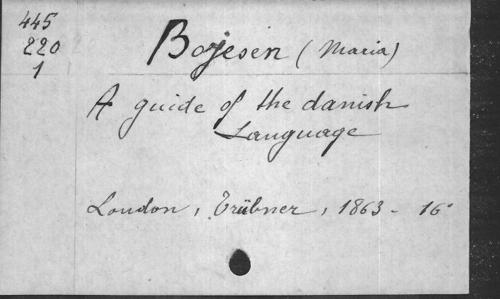 445
220
1
Bojesen (Maria)
A guide of the danish
Language
London, Trübner, 1863 - 16°